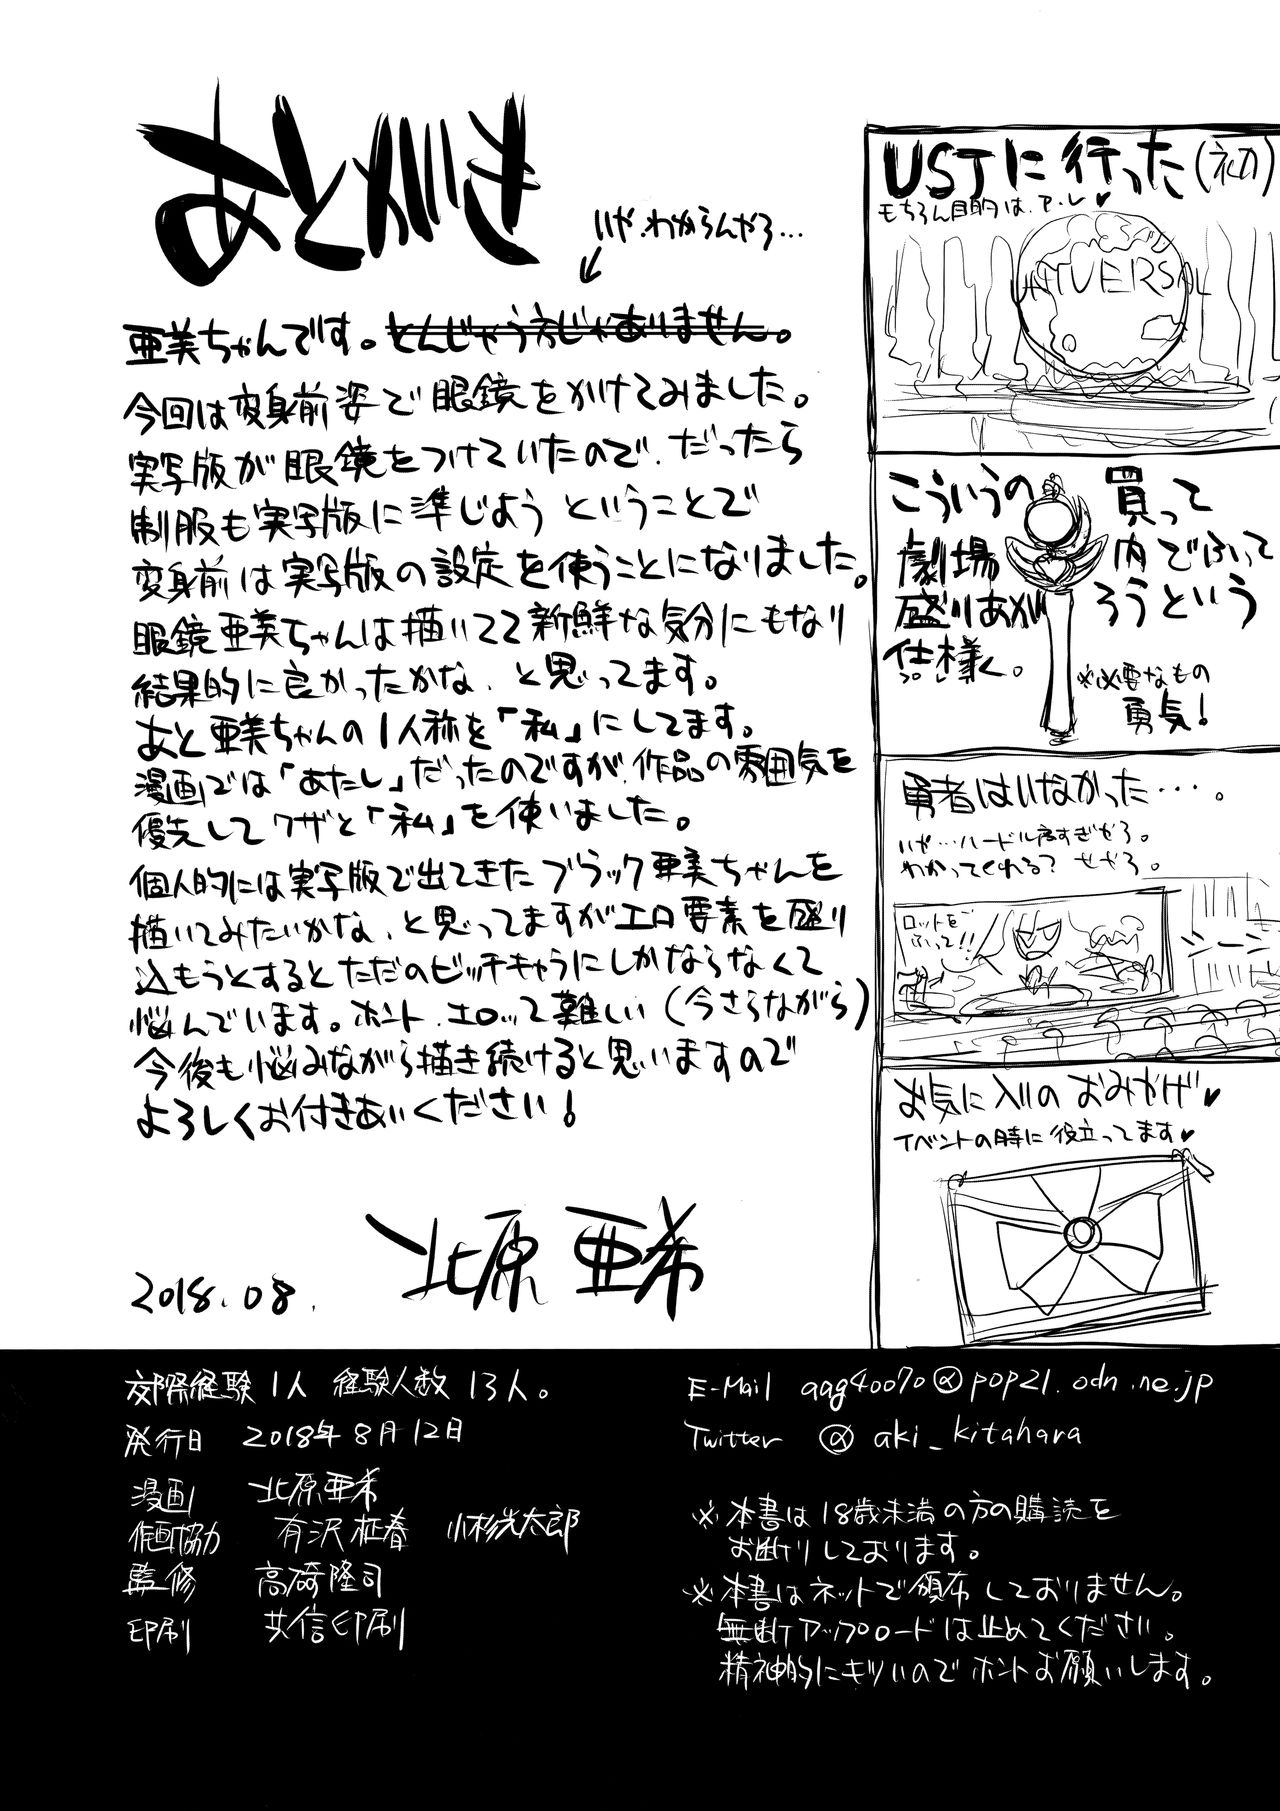 あとがき
いや、わからんやろ…
亜美ちゃんです。とんじゃう方じゃありません。
今回は変身前姿で眼鏡をかけてみました。
実写版が眼鏡をつけていたので、だったら
制服も実写版に準じよう ということで
変身前は実写版の設定を使うことになりました。
眼鏡亜美ちゃんは描いてて新鮮な気分にもなり
結果的に良かったかな、と思ってます。
あと亜美ちゃんの1人称を「私」にしてます。
漫画では「あたし」だったのですが、作品の雰囲気を
優先してワザと「私」を使いました。
個人的には実写版で出てきたブラック亜美ちゃんを
描いてみたいかな、と思ってますがエロ要素を盛り
込もうとするとただのビッチキャラにしかならなくて
悩んでいます。ホント、エロって難しい(今さらながら)
今後も悩みながら描き続けると思いますので
よろしくお付きあいください!
2018.08.
北原亜希
USJに行った(初)
もちろん目的は、ア・レ♥
UNIVERSAL
こういうの買って
劇場内でふって
盛りあがろうという
仕様、
※必要なもの
勇気!
勇者はいなかった・・・。
いや…ハードル高すぎやろ。
わかってくれる? せやろ。
ロットを
ふって!!
シーン
お気に入りのおみやげ♥
イベントの時に役立ってます♥
交際経験1人 経験人数13人。
発行日 2018年8月12日
漫画 北原亜希
作画協力 有沢柾春 小杉光太郎
監修 高崎隆司
印刷 共信印刷
E-Mail aag40070@pop21.odn.ne.jp
Twitter @aki_kitahara
※本書は18歳未満の方の購読を
お断りしております。
※本書はネットで頒布しておりません。
無断アップロードは止めてください。
精神的にキツいのでホントお願いします。